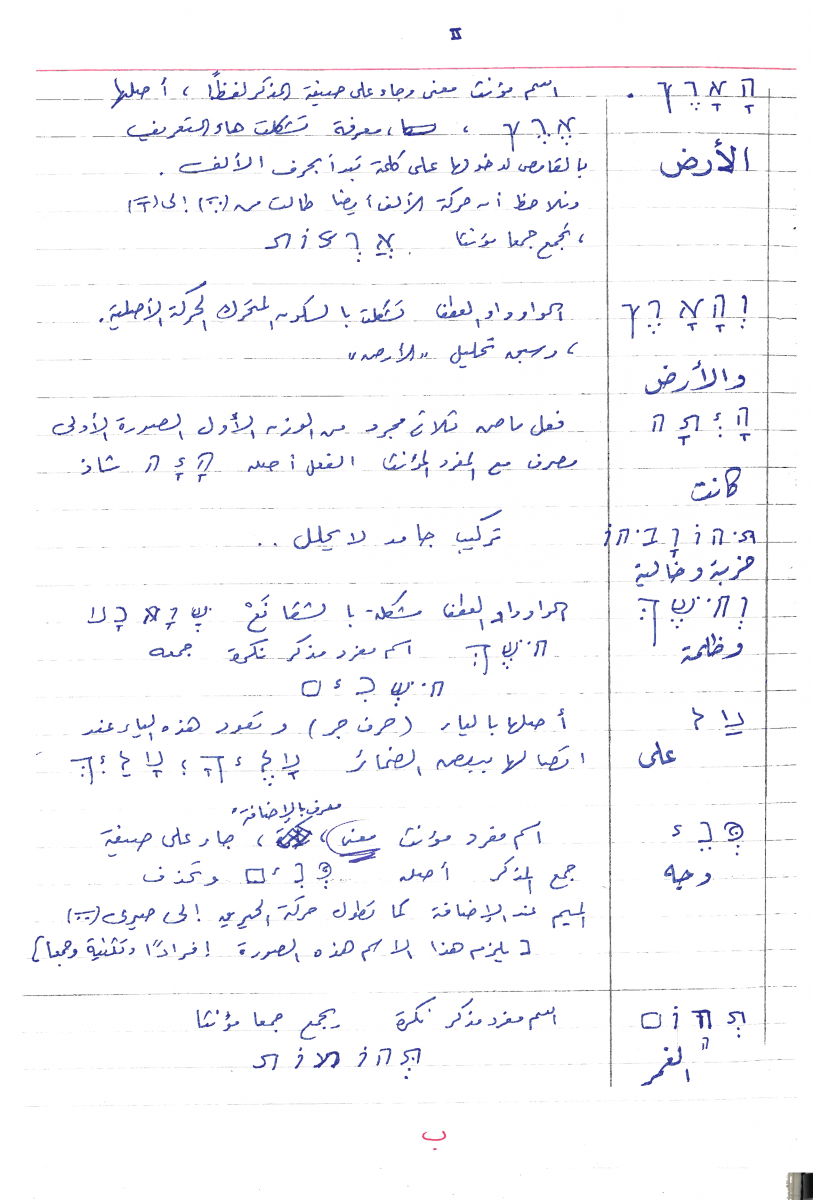 II
הָאָרֶץ . اسم مؤنث معنى وجاء على صيغة المذكر لفظًا ، أصلها
אֶרֶץ ، معرفة تشكلت هاء التعريف
الأرض
بالقامص لدخولها على كلمة تبدأ بحرف الألف .
ونلاحظ أن حركة الألف أيضا طالت من (ֶ) إلى (ָ)
، تجمع جمعا مؤنثا אֲרָצוֹת
וְהָאָרֶץ الواو واو العطف تشكلت بالسكون المتحرك الحركة الأصلية .
، وسبق تحليل "الأرض"
والأرض
הָיְתָה فعل ماض ثلاثي مجرد من الوزن الأول الصورة الأولى
مصرف مع المفرد المؤنث الفعل أصله הָיָה شاذ
كانت
תֹהוּ וָבֹהוּ تركيب جامد لا يحلل ..
خربة وخالية
וְחֹשֶׁךְ الواو واو العطف مشكلة بالشفا نَعْ שְׁוָא נָע
חֹשֶׁךְ اسم مفرد مذكر نكرة جمعه
وظلمة
חֹשֶׁכִים
עַל أصلها بالياء (حرف جر) وتعود هذه الياء عند
على
اتصالها ببعض الضمائر עָלֶיךָ ؛ עָלַיִךְ
معرف بالإضافة
פְּנֵי اسم مفرد مؤنث معنى ، جاء على صيغة
وجه
جمع المذكر أصله פָּנִים وتحذف
الميم عند الإضافة كما تطول حركة الحيرق إلى صيرى (ֵ)
[ يلزم هذا الاسم هذه الصورة إفرادًا وتثنية وجمعا ]
תְהוֹם اسم مفرد مذكر نكرة ويجمع جمعا مؤنثا
ה
الغمر
תְּהוֹמוֹת
ب